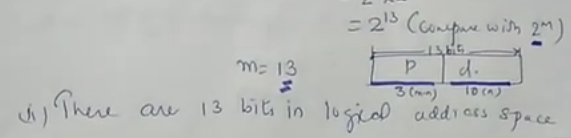 = 2^13 (compare with 2^m)
13 bits
m = 13
p d.
3(m-n) 10(n)
ii) There are 13 bits in logical address space